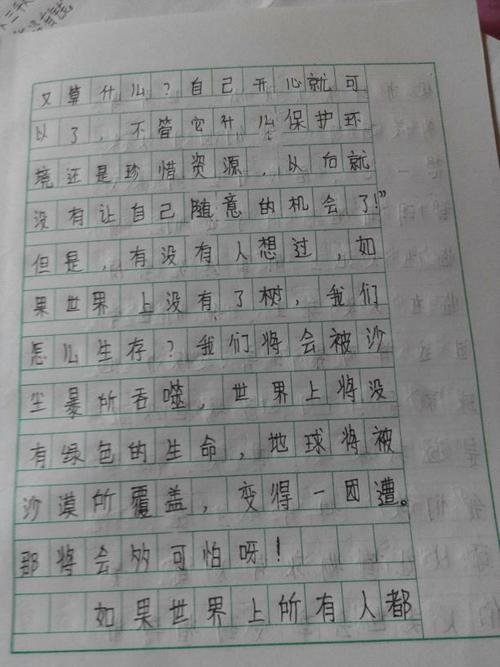 又算什么？自己开心就可
以了，不管它什么保护环
境还是珍惜资源，以向就
没有让自己随意的机会了！”
但是，有没有人想过，如
果世界上没有了树，我们
怎么生存？我们将会被沙
尘暴所吞噬，世界上将没
有绿色的生命，地球将被
沙漠所覆盖，变得一团遭。
那将会多可怕呀！
如果世界上所有人都